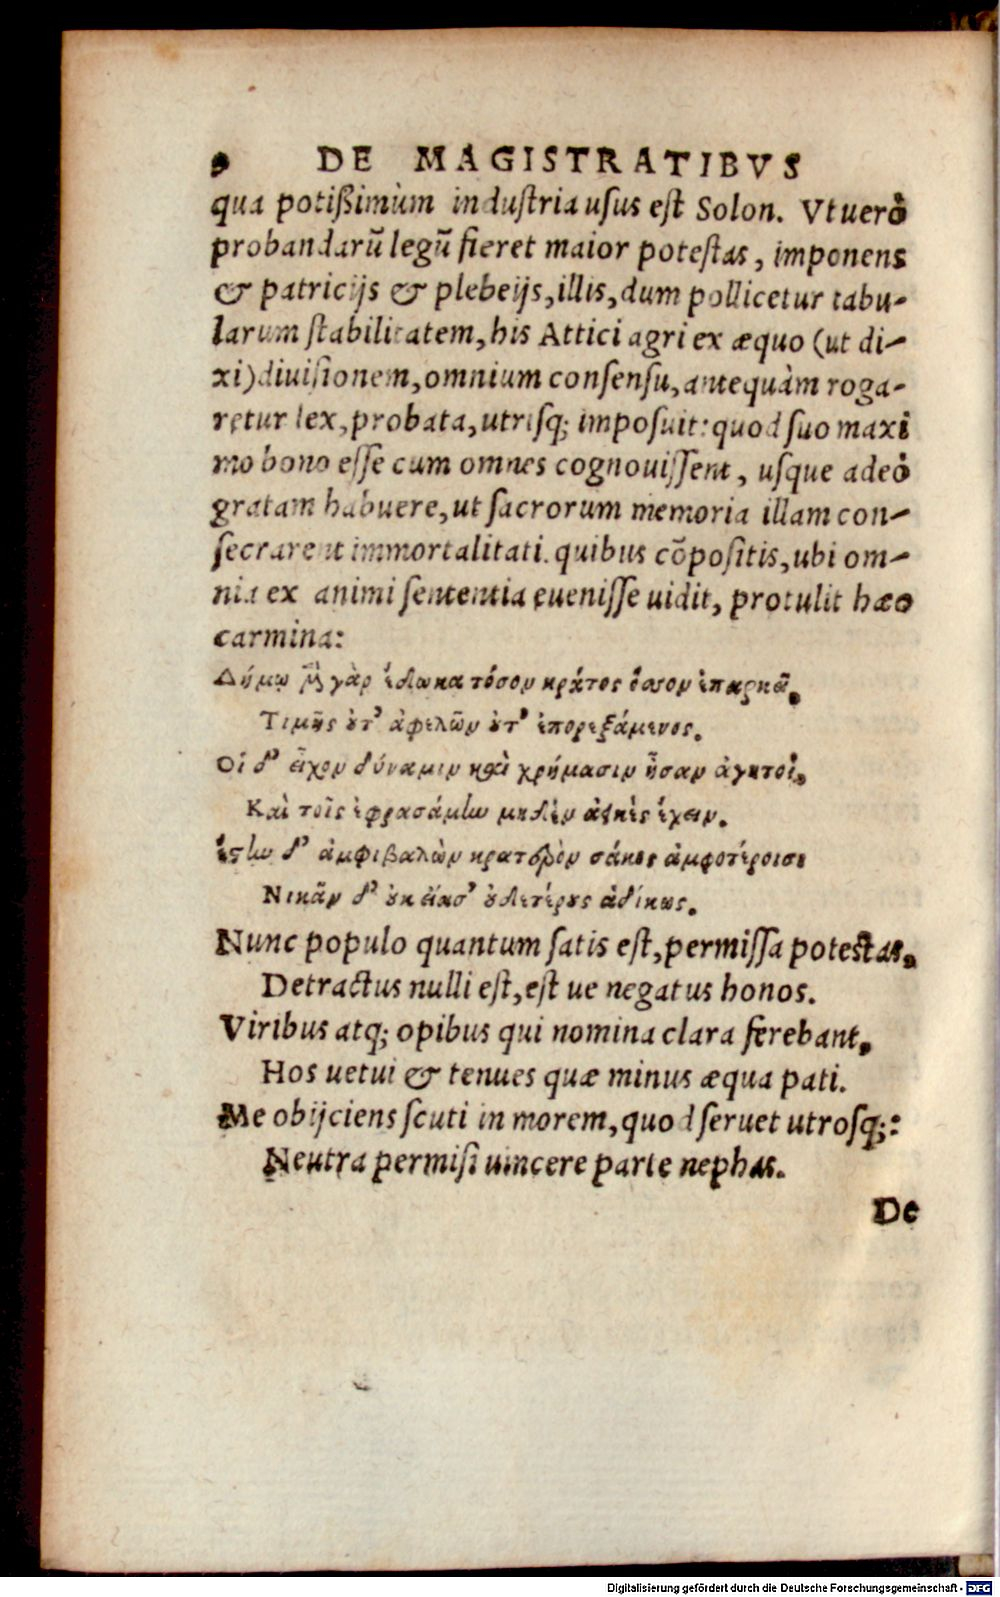 DE MAGISTRATIBVS
qua potißimùm industria usus est Solon. Vt uerò
probandarũ legũ fieret maior potestas, imponens
& patricijs & plebeijs, illis, dum pollicetur tabu-
larum stabilitatem, his Attici agri ex æquo (ut di-
xi) diuisionem, omnium consensu, antequàm roga-
retur lex, probata, utrisq; imposuit: quod suo maxi
mo bono esse cum omnes cognouissent, usque adeò
gratam habuere, ut sacrorum memoria illam con-
secrarent immortalitati. quibus cõpositis, ubi om-
nia ex animi sententia euenisse uidit, protulit hæc
carmina:
Δήμῳ μὲν γὰρ ἔδωκα τόσον κράτος ὅσσον ἐπαρκεῖ,
Τιμῆς οὔτ' ἀφελὼν οὔτ' ἐπορεξάμενος.
Οἳ δ' εἶχον δύναμιν καὶ χρήμασιν ἦσαν ἀγητοί,
Καὶ τοῖς ἐφρασάμην μηδὲν ἀεικὲς ἔχειν.
ἔστην δ' ἀμφιβαλὼν κρατερὸν σάκος ἀμφοτέροισι
Νικᾶν δ' οὐκ εἴασ' οὐδετέρους ἀδίκως.
Nunc populo quantum satis est, permissa potestas,
Detractus nulli est, est ue negatus honos.
Viribus atq; opibus qui nomina clara ferebant,
Hos uetui & tenues quæ minus æqua pati.
Me obijciens scuti in morem, quod seruet utrosq;:
Neutra permisi uincere parte nephas.
De
Digitalisierung gefördert durch die Deutsche Forschungsgemeinschaft - DFG